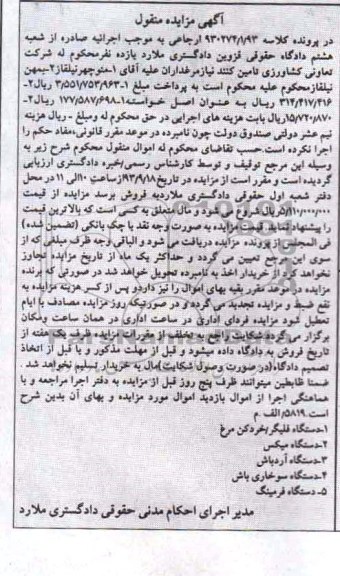 آگهی مزایده منقول
در پرونده کلاسه ۹۳۰۲۷۴/۱/۹۳ ارجاعی به موجب اجرائیه صادره از شعبه
هشتم دادگاه حقوقی قزوین دادگستری ملارد یازده نفرمحکوم له شرکت
تعاونی کشاورزی تامین کنند نیازمرغداران علیه آقای ۱-منوچهرنیلفاز۲-بیهن
نیلفازمحکوم علیه محکوم است به پرداخت مبلغ ۱-۳/۵۵۱/۷۵۳/۹۶۳ ریال۲-
۳۱۴/۴۱۷/۴۱۶ ریال به عنوان اصل خواسته۱-۱۷۷/۵۸۷/۶۹۸ ریال۲-
۱۵/۷۲۰/۸۷۰ریال بابت هزینه های اجرایی در حق محکوم له ومبلغ - ریال هزینه
نیم عشر دولتی صندوق دولت چون نامبرده در موعد مقرر قانونی،مفاد حکم را
اجرا نکرده است.حسب تقاضای محکوم له اموال منقول محکوم شرح زیر به
وسیله این مرجع توقیف و توسط کارشناس رسمی/خبره دادگستری ارزیابی
گردیده است و مقرر است از مزایده در تاریخ۹۳/۹/۱۸ازساعت ۱۰الی ۱۱ در محل
دفتر شعبه اول حقوقی دادگستری ملاردبه فروش برسد مزایده از قیمت
۵/۱۱۰/۰۰۰/۰۰۰ریال شروع می شود و مال متعلق به کسی است که بالاترین قیمت
را پیشنهاد نماید. قیمت مزایده به صورت وجه نقد یا چک بانکی (تضمین شده )
فی المجلس از پرونده مزایده دریافت می شود و الباقی وجه ظرف مبلغی که از
سوی این مرجع تعیین می گردد و حداکثر یک ماه از تاریخ مزایده تجاوز
نخواهد کرد از خریدار اخذ به نامبرده تحویل خواهد شد در صورتی که برنده
مزایده در موعد مقرر بقیه بهای اموال را نپز داردو پس از کسر هزینه مزایده به
نفع ضبط و مزایده تجدید می گردد و در صورتیکه روز مزایده مصادف با ایام
تعطیل شود مزایده فردای اداری در ساعت اداری در همان ساعت ومکان
برگزار می گردد.شکایت راجع به تخلف از مقررات مزایده ظرف یک هفته از
تاریخ فروش به دادگاه داده میشود و قبل از مهلت مذکور و یا قبل از اتخاذ
تصمیم دادگاه(در صورت وصول شکایت)مال به خریدار تسلیم نخواهد شد .
ضمنا طالبطین میتوانند ظرف پنج روز قبل از مزایده به دفتر اجرا مراجعه و با
هماهنگی اجرا از اموال بازدید اموال مورد مزایده و بهای آن بدین شرح
است.۵۸۱۹/الف .م
۱-دستگاه فلیگر/خردکن مرغ
۲-دستگاه میکس
۳-دستگاه آردپاش
۴-دستگاه سوخاری پاش
۵- دستگاه فرمینگ
مدیر اجرای احکام مدنی حقوقی دادگستری ملارد